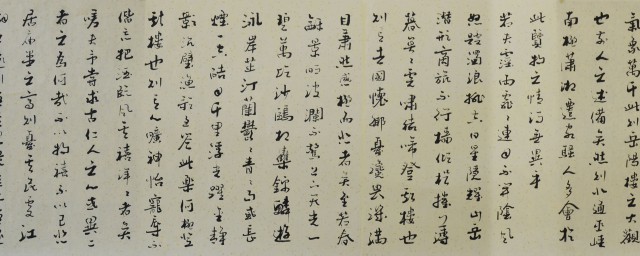 氣象萬千此則岳陽樓之大觀
也前人之述備矣然則北通巫峽
南極瀟湘遷客騷人多會於
此覽物之情得無異乎
若夫霪雨霏霏連月不開陰風
怒號濁浪排空日星隱耀山岳
潛形商旅不行檣傾楫摧薄
暮冥冥虎嘯猿啼登斯樓也
則有去國懷鄉憂讒畏譏滿
目蕭然感極而悲者矣至若春
和景明波瀾不驚上下天光一
碧萬頃沙鷗翔集錦鱗游
泳岸芷汀蘭鬱鬱青青而或長
煙一空皓月千里浮光躍金靜
影沉璧漁歌互答此樂何極登
斯樓也則有心曠神怡寵辱
偕忘把酒臨風其喜洋洋者矣
嗟夫予嘗求古仁人之心或異二
者之為何哉不以物喜不以己悲
居廟堂之高則憂其民處江